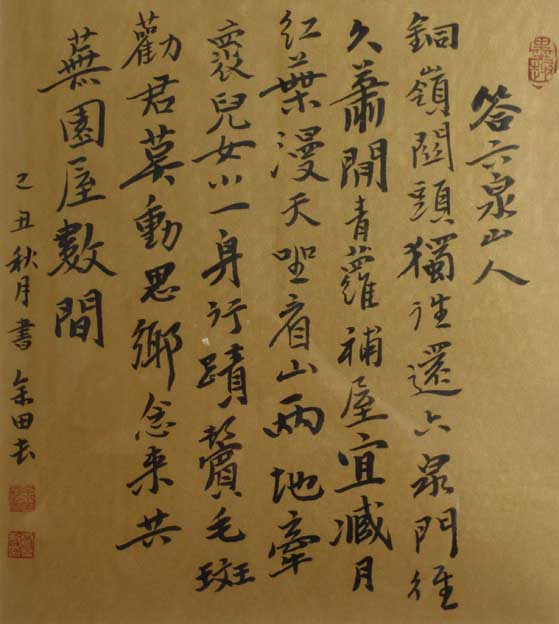 答六泉山人
銅嶺關頭獨往還六泉門徑
久蕭閒青蘿補屋宜藏月
紅葉漫天坐看山兩地牽
褱兒女小一身行蹟鬢毛斑
勸君莫動思鄉念来共
蕪園屋數間
己丑秋月書余田